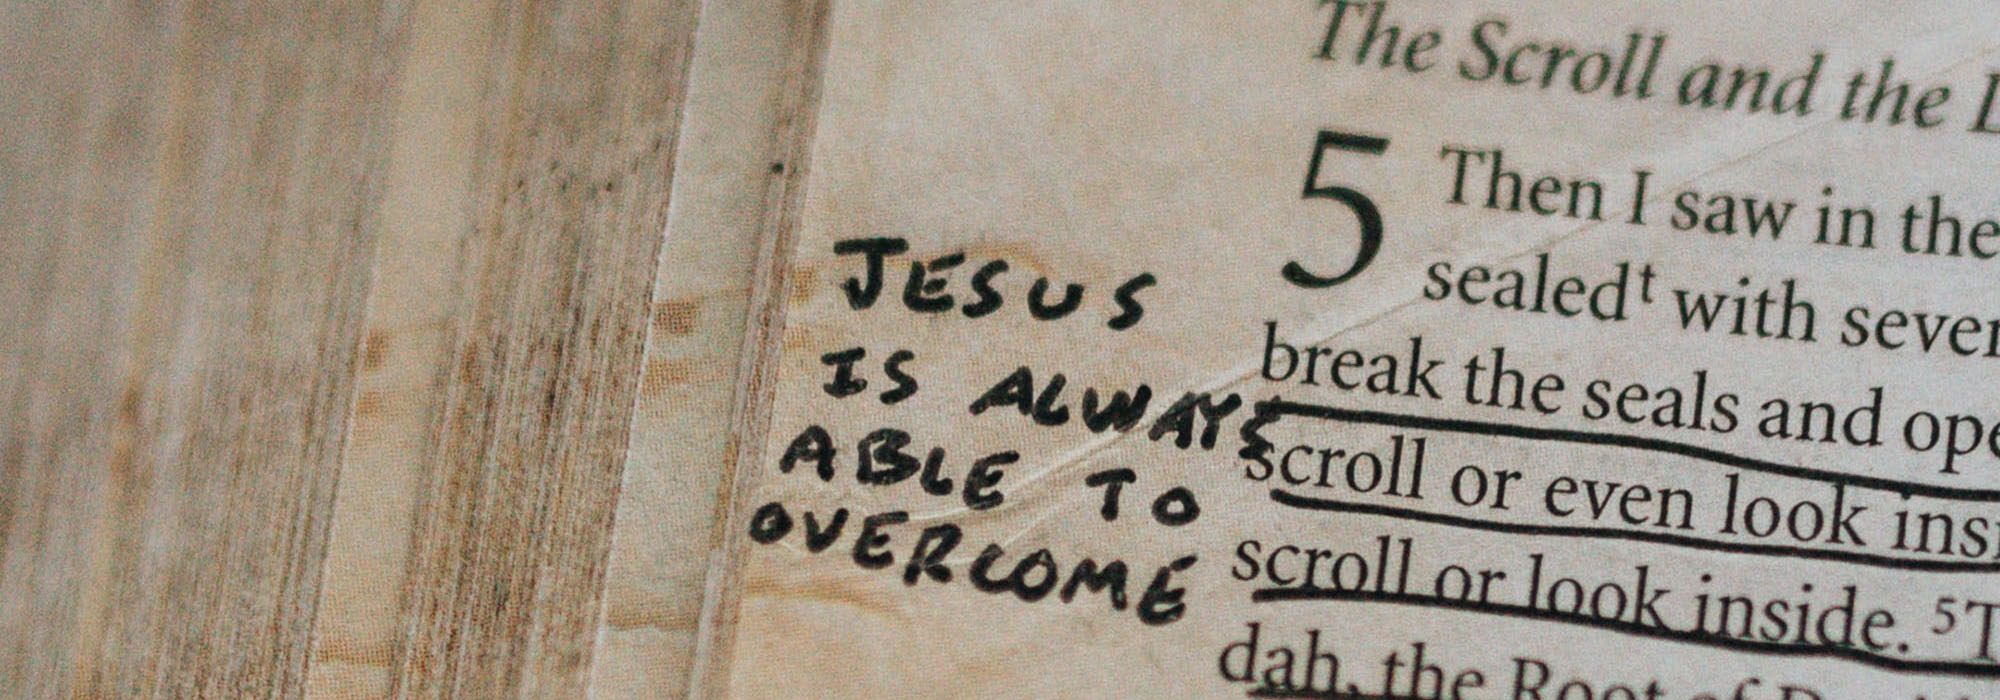 The Scroll and the
5 Then I saw in the
sealedᵗ with
break the seals and
scroll or even look
scroll or look inside. ⁵
dah, the Root of
JESUS
IS ALWAYS
ABLE TO
OVERCOME